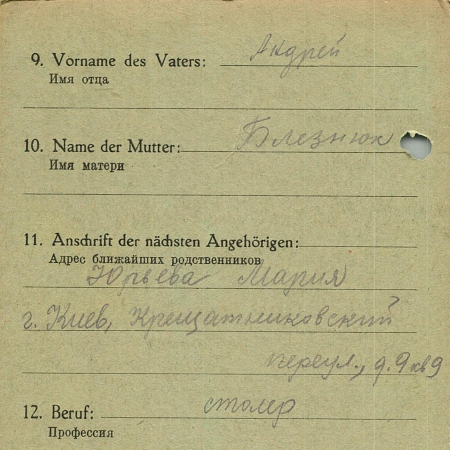 9. Vorname des Vaters: Андрей
Имя отца
10. Name der Mutter: Блезнюк
Имя матери
11. Anschrift der nächsten Angehörigen:
Адрес ближайших родственников
Юрьева Мария
г. Киев, Крещатниковский
переул., д. 9 кв 9
12. Beruf: столер
Профессия